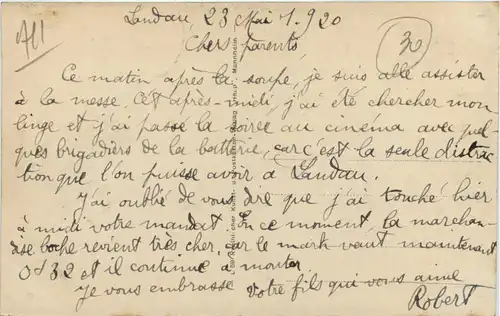 All
30
Landau 23 Mai 1.920
Chers parents,
Ce matin après la soupe, je suis allé assister
à la messe. Cet après-midi, j'ai été chercher mon
linge et j'ai passé la soirée au cinéma avec quel
ques brigadiers de la batterie, car c'est la seule distrac
tion que l'on puisse avoir à Landau.
J'ai oublié de vous dire que j'ai touché hier
à midi votre mandat. En ce moment, la marchan
dise boche revient très cher, car le mark vaut maintenant
0f32 et il continue à monter.
Je vous embrasse votre fils qui vous aime
Robert